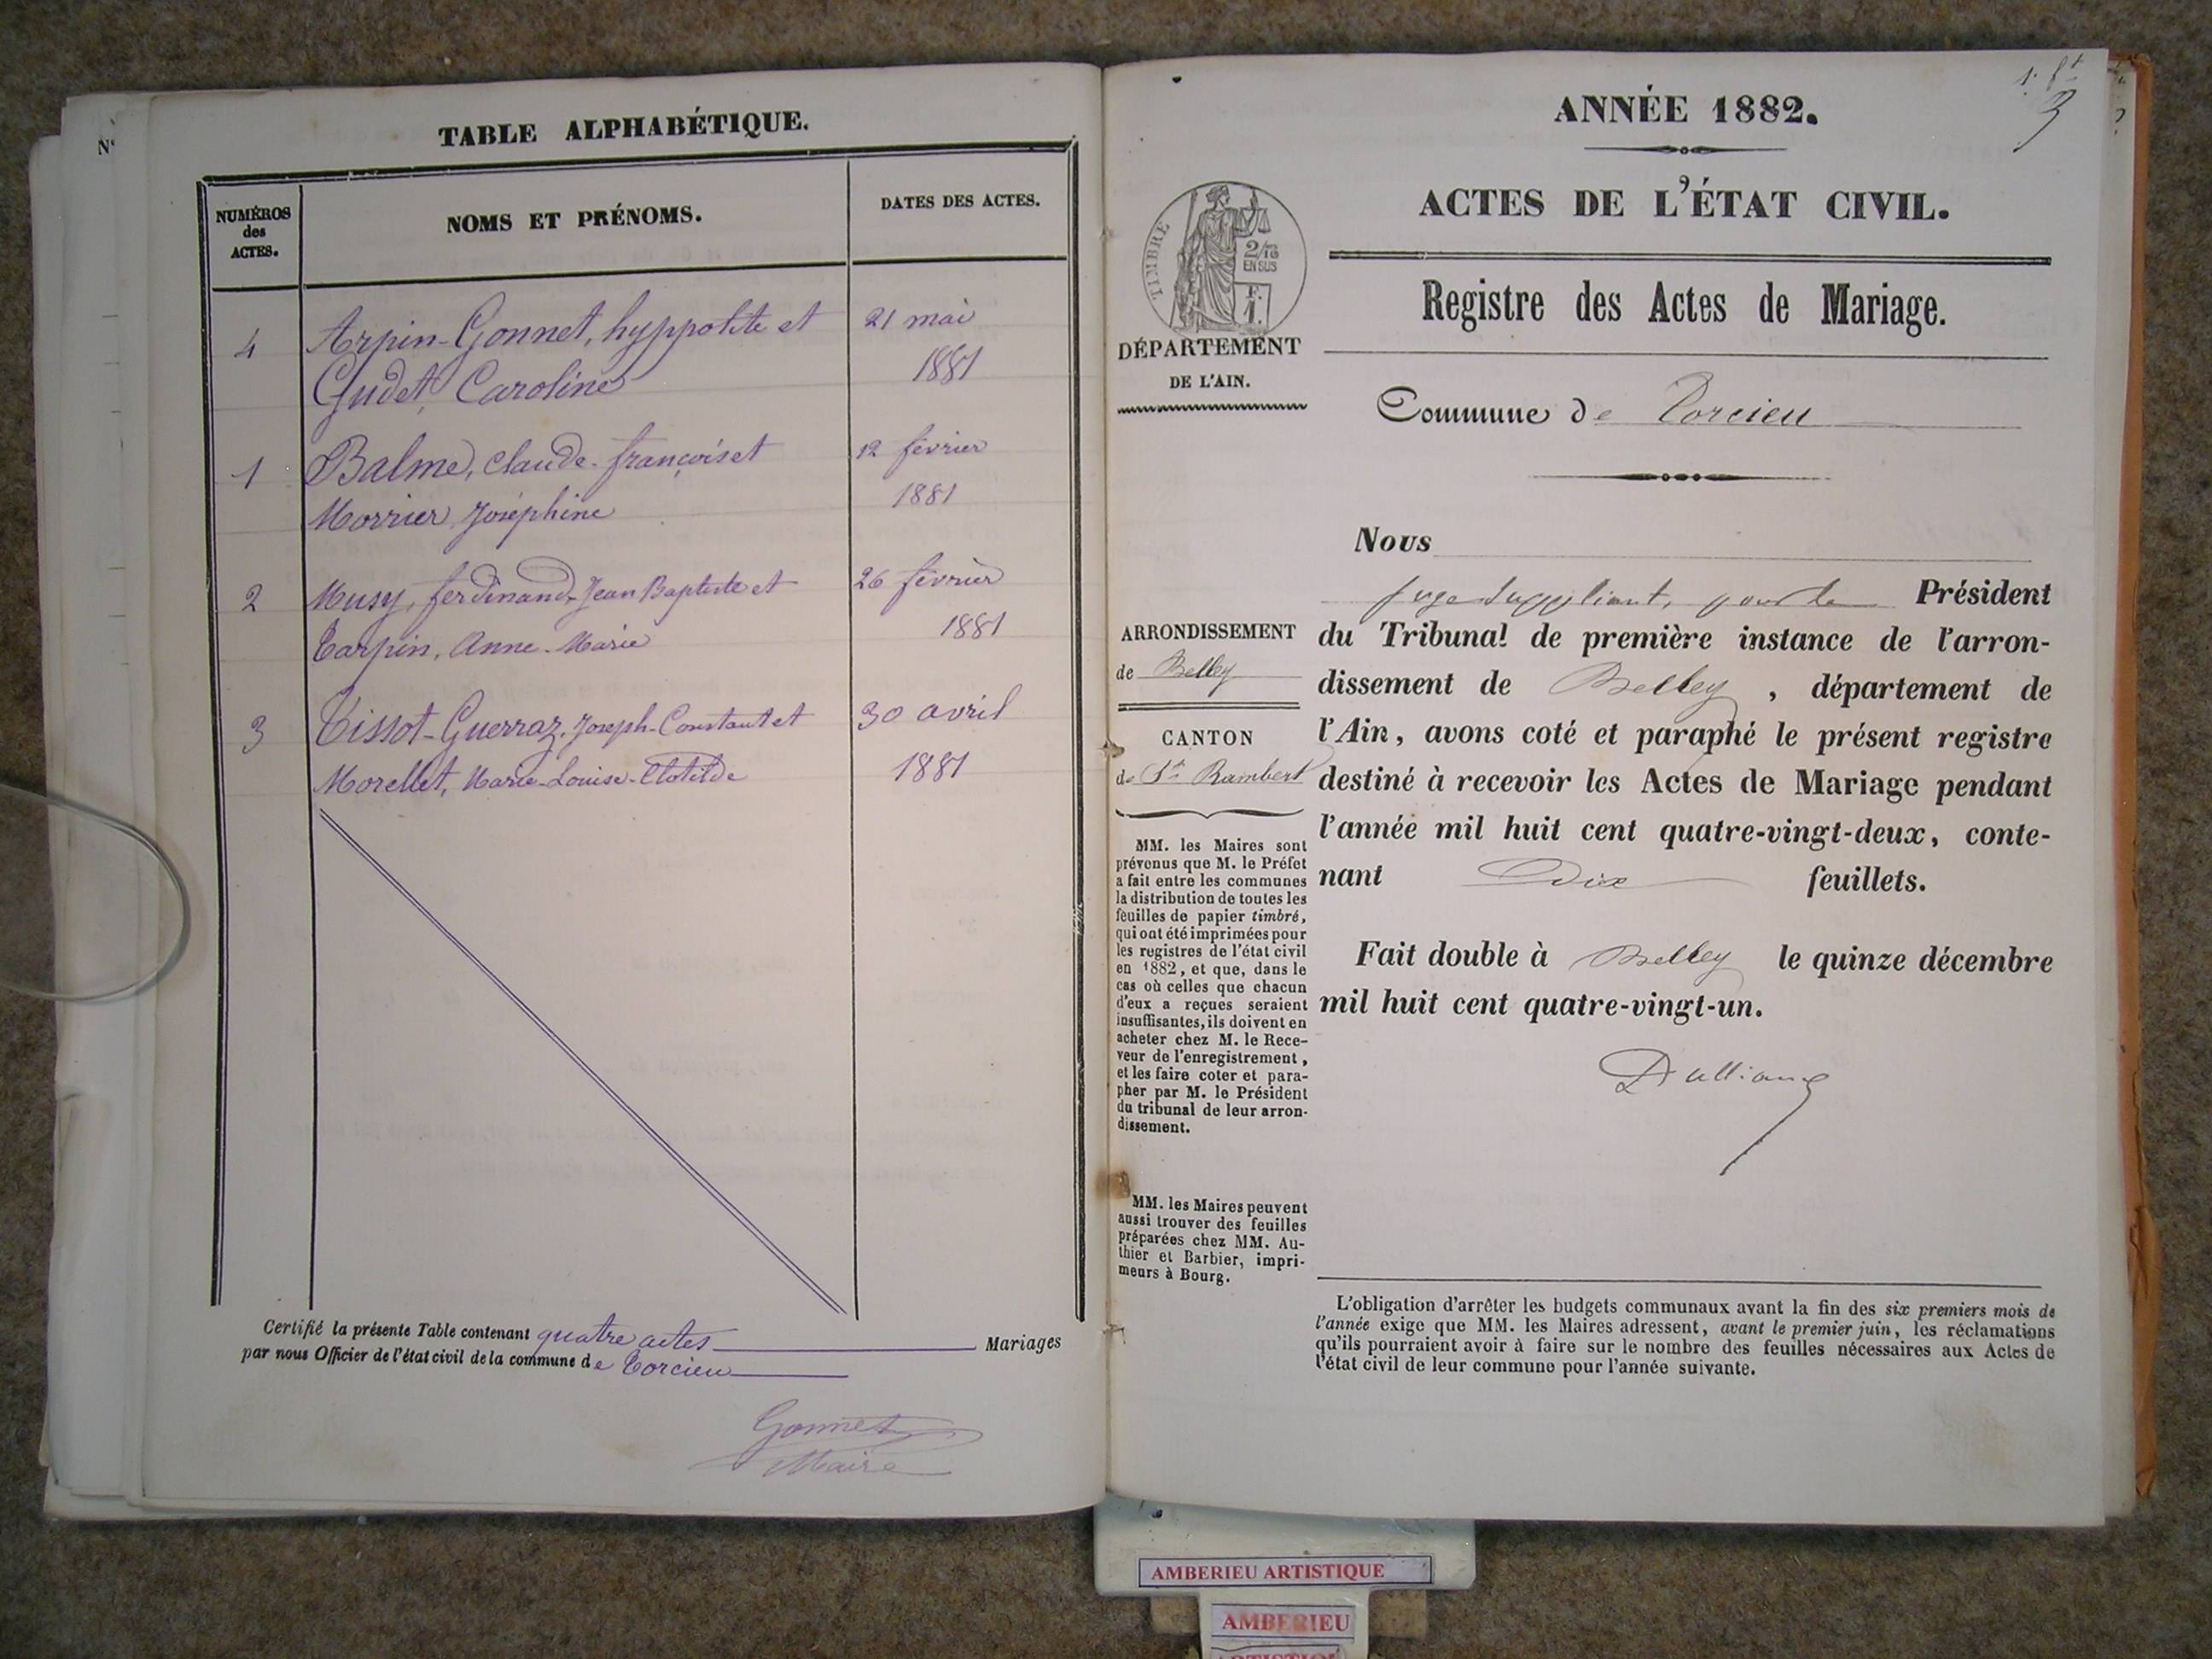 N°
TABLE ALPHABÉTIQUE.
NUMÉROS
des
ACTES.
NOMS ET PRÉNOMS.
DATES DES ACTES.
4
Arpin-Gonnet, hyppolite et
21 mai
Gudet, Caroline
1881
1
Balme, Claude-françois et
12 février
Morrier, Joséphine
1881
2
Musy, ferdinand-Jean Baptiste et
26 février
Tarpin, Anne-Marie
1881
3
Tissot-Guerraz, Joseph-Constant et
30 avril
Morellet, Marie-Louise-Clotilde
1881
Certifié la présente Table contenant quatre actes Mariages
par nous Officier de l'état civil de la commune de Torcieu
Gonnet
Maire
1. ft
ANNÉE 1882.
ACTES DE L'ÉTAT CIVIL.
TIMBRE
2/10
EN SUS
F.
1.
Registre des Actes de Mariage.
DÉPARTEMENT
DE L'AIN.
Commune de Torcieu
Nous
juge suppliant, pour le Président
du Tribunal de première instance de l'arron-
dissement de Belley, département de
l'Ain, avons coté et paraphé le présent registre
destiné à recevoir les Actes de Mariage pendant
l'année mil huit cent quatre-vingt-deux, conte-
nant Dix feuillets.
Fait double à Belley le quinze décembre
mil huit cent quatre-vingt-un.
ARRONDISSEMENT
de Belley
CANTON
de St Rambert
MM. les Maires sont
prévenus que M. le Préfet
a fait entre les communes
la distribution de toutes les
feuilles de papier timbré,
qui ont été imprimées pour
les registres de l'état civil
en 1882, et que, dans le
cas où celles que chacun
d'eux a reçues seraient
insuffisantes, ils doivent en
acheter chez M. le Rece-
veur de l'enregistrement,
et les faire coter et para-
pher par M. le Président
du tribunal de leur arron-
dissement.
MM. les Maires peuvent
aussi trouver des feuilles
préparées chez MM. Au-
thier et Barbier, impri-
meurs à Bourg.
L'obligation d'arrêter les budgets communaux avant la fin des six premiers mois de
l'année exige que MM. les Maires adressent, avant le premier juin, les réclamations
qu'ils pourraient avoir à faire sur le nombre des feuilles nécessaires aux Actes de
l'état civil de leur commune pour l'année suivante.
AMBERIEU ARTISTIQUE
AMBERIEU
ARTISTIQUE